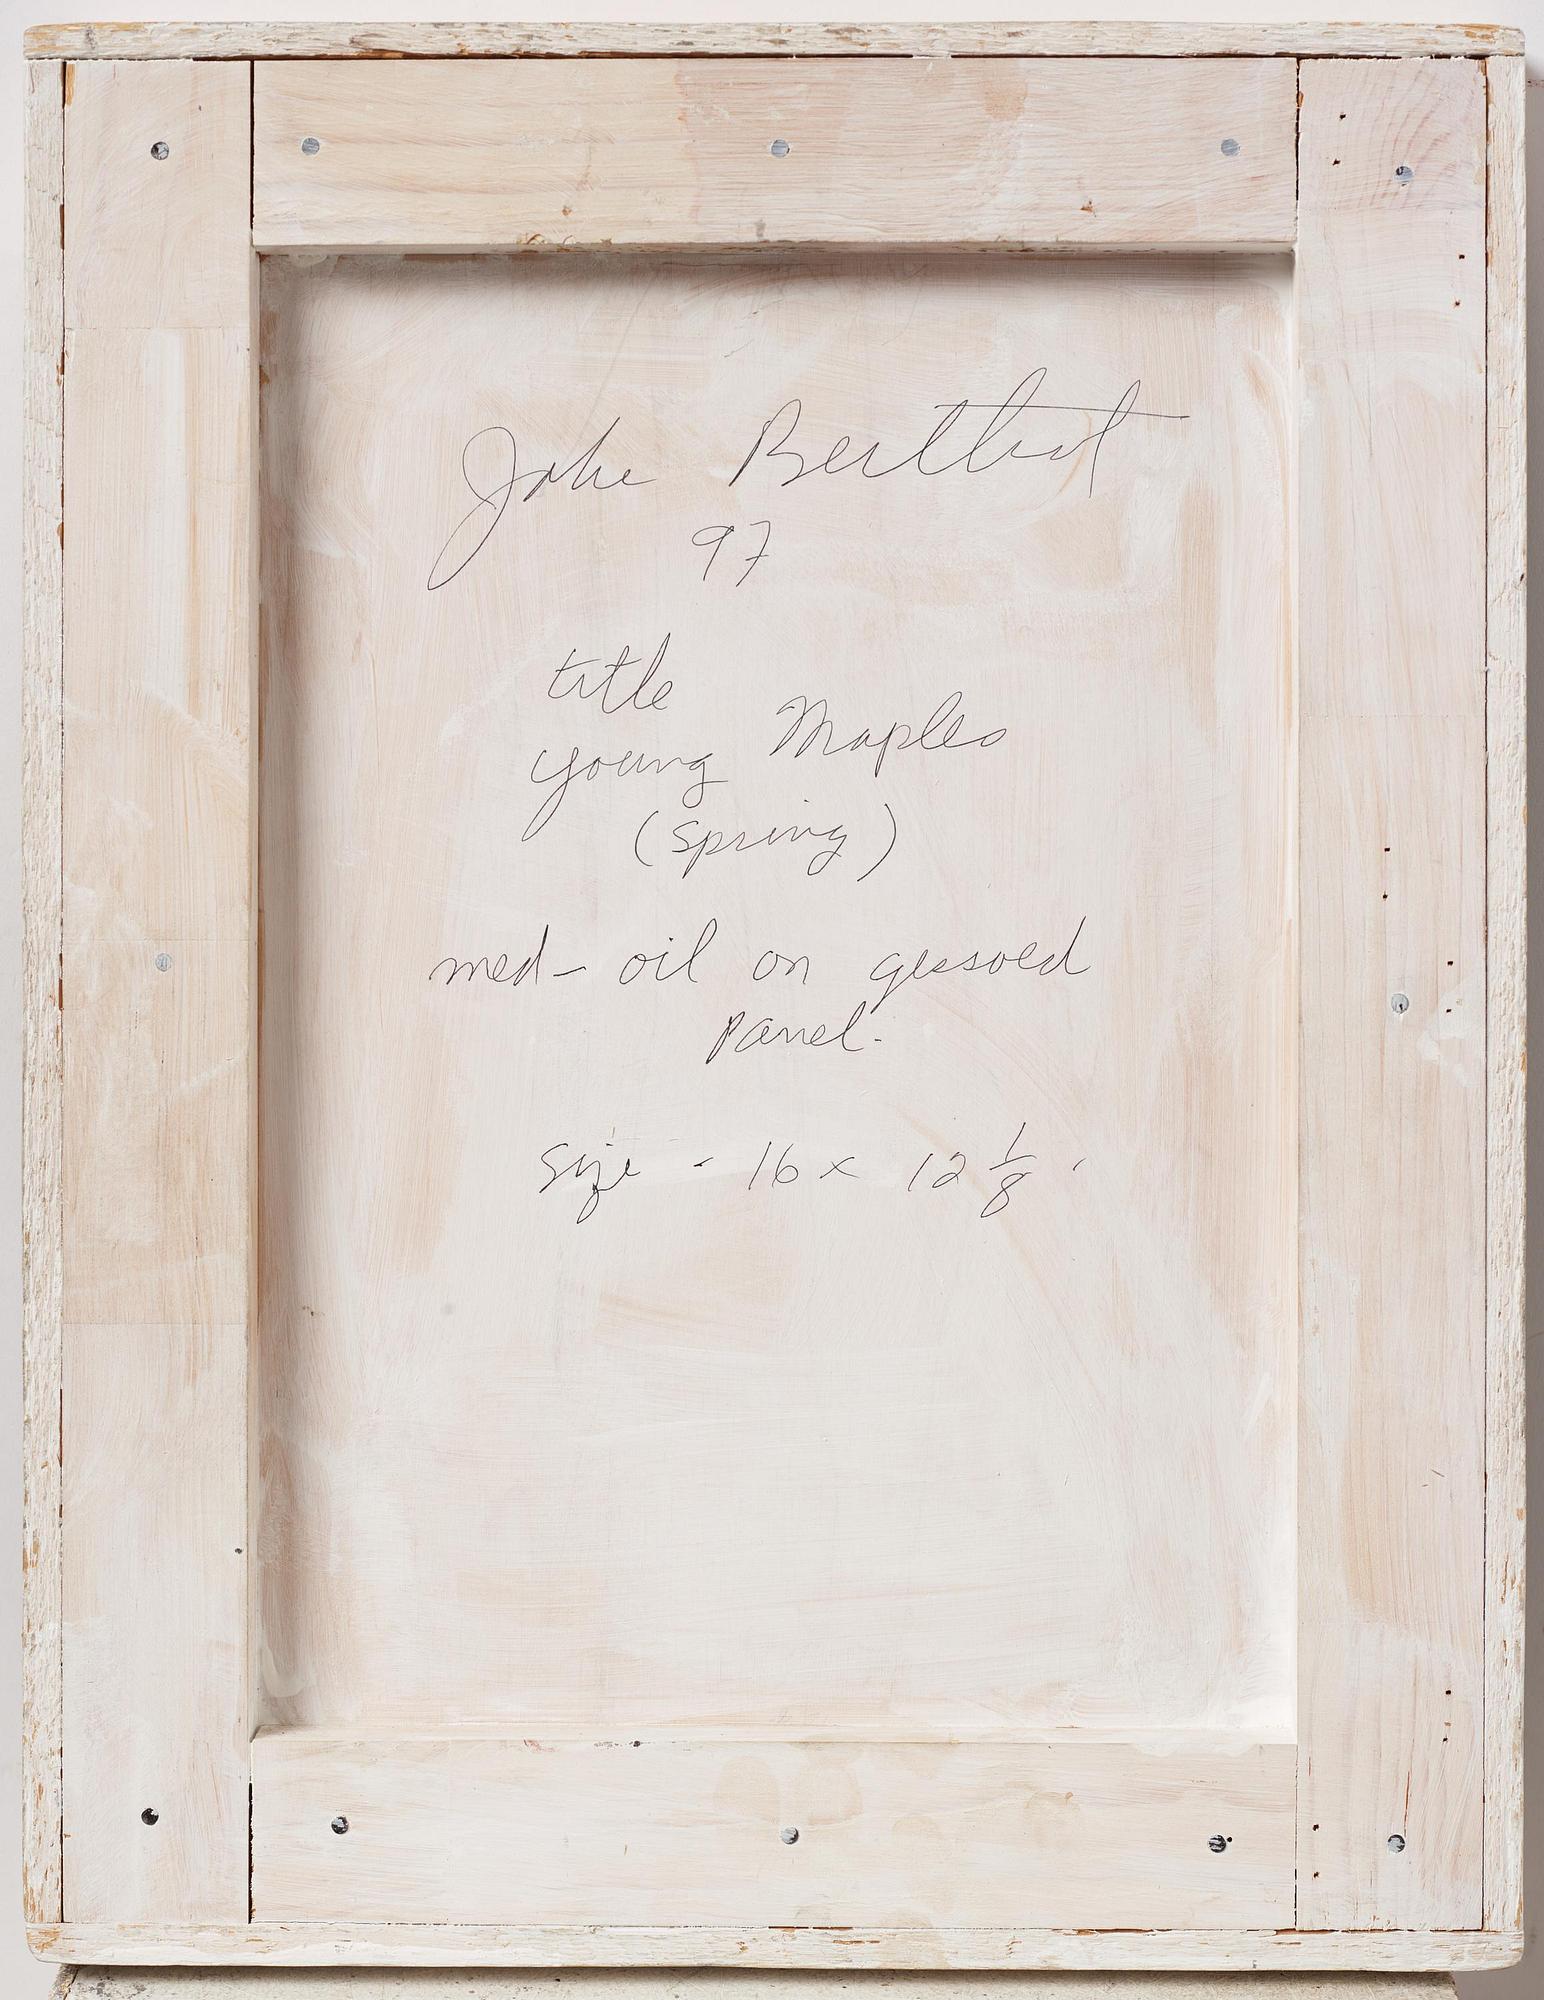 Jake Berthot
97
title
young Maples
(spring)
med- oil on gessoed
panel.
size - 16 x 12 1/8